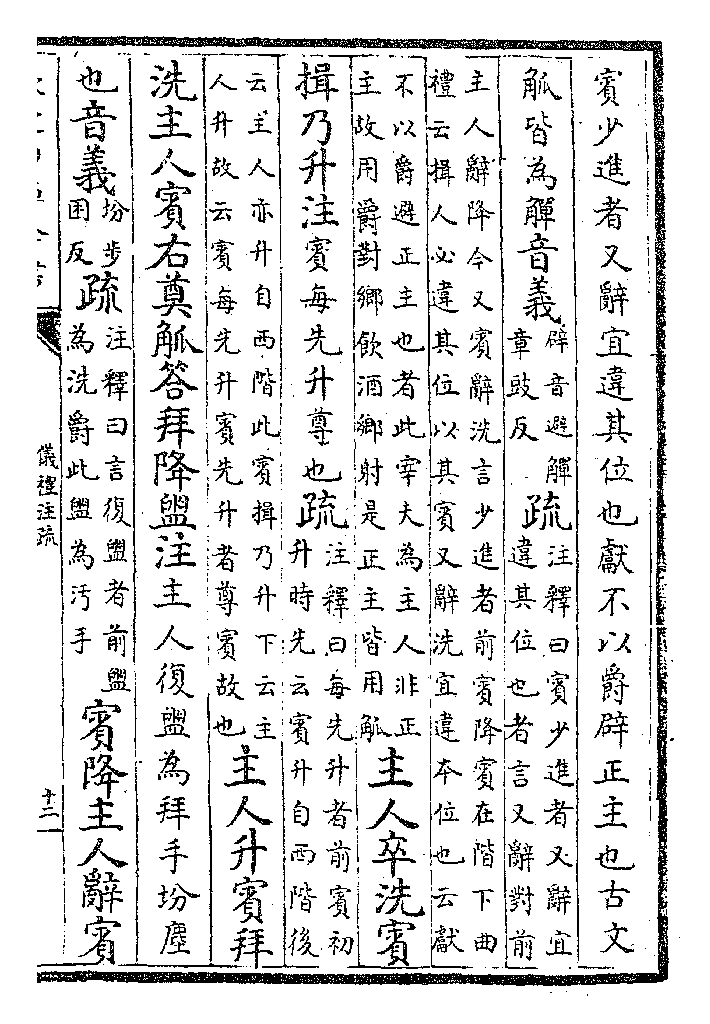 賓少進者又辭宜違其位也獻不以爵辟正主也古文
觚皆為觶音義辟音避觶章豉反疏注釋曰賓少進者又辭宜違其位也者言又辭對前
主人辭降今又賓辭洗言少進者前賓降賓在階下曲禮云揖人必違其位以其賓又辭洗宜違本位也云獻
不以爵避正主也者此宰夫為主人非正主故用爵對鄉飲酒鄉射是正主皆用觚主人卒洗賓
揖乃升注賓每先升尊也疏注釋曰每先升者前賓初升時先云賓升自西階後
云主人亦升自西階此賓揖乃升下云主人升故云賓每先升賓先升者尊賓故也主人升賓拜
洗主人賓右奠觚答拜降盥注主人復盥為拜手坋塵
也音義坋步困反疏注釋曰言復盥者前盥為洗爵此盥為汚手賓降主人辭賓
儀禮注疏
十二